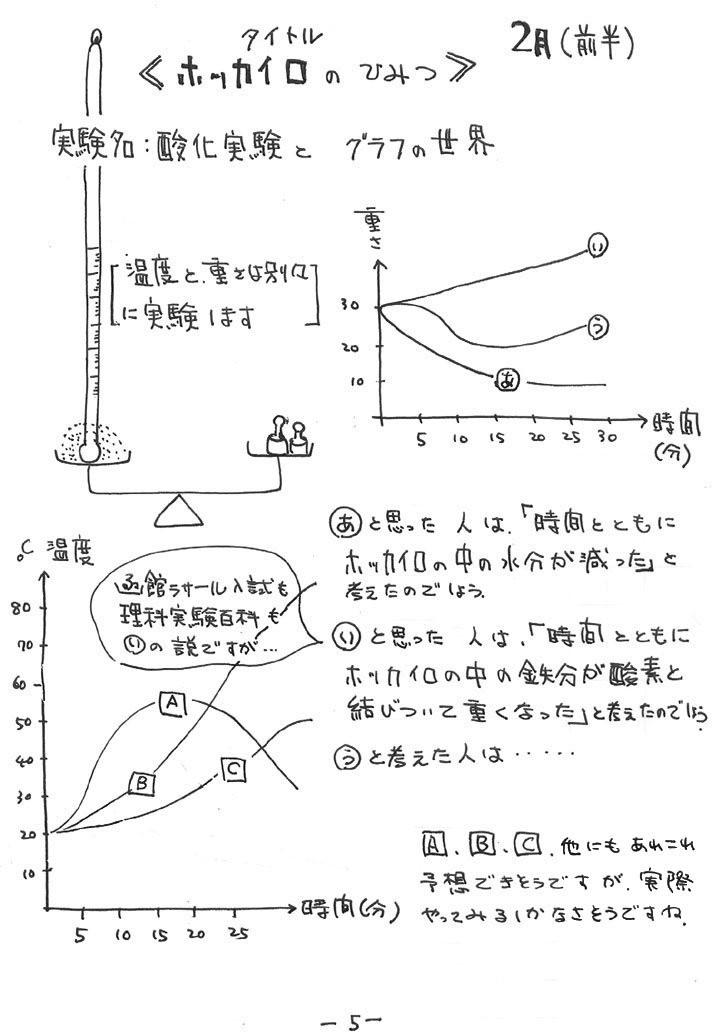 タイトル
≪ ホッカイロ の ひみつ ≫
2月(前半)
実験名:酸化実験と グラフの世界
[温度と、重さは別々
に実験します]
重さ
30
20
10
い
う
あ
5 10 15 20 25 30
時間
(分)
℃ 温度
80
70
60
50
40
30
20
10
函館ラサール入試も
理科実験百科も
いの説ですが…
A
B
C
5 10 15 20 25
時間(分)
あと思った人は、「時間とともに
ホッカイロの中の水分が減った」と
考えたのでしょう。
いと思った人は、「時間とともに
ホッカイロの中の鉄分が酸素と
結びついて重くなった」と考えたのでしょう。
うと考えた人は・・・・・
A、B、C、他にもあれこれ
予想できそうですが、実際
やってみるしかなさそうですね。
－5－